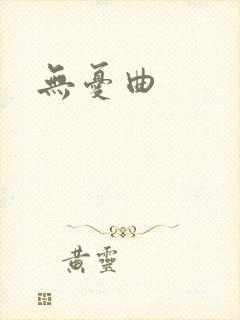 無憂曲
黃靈